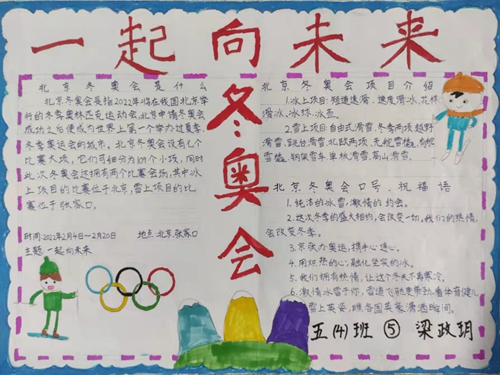 一起向未来
冬奥会
北京冬奥会是什么
北京冬奥会是指2022年将在我国北京举
行的冬季奥林匹克运动会,北京申请冬奥会
成功之后便成为世界上第一个举办过夏季
冬季奥运会的城市。北京冬奥会设有七个
比赛大项,它们可细分为109个小项,同时
此次冬奥会还拥有两个比赛会场,其中冰
上项目的比赛位于北京,雪上项目的比
赛位于张家口
时间:2022年2月4日—2月20日
地点:北京,张家口
主题:一起向未来
北京冬奥会项目介绍
1.冰上项目:短道速滑、速度滑冰、花样
滑冰、冰球、冰壶
2.雪上项目:自由式滑雪、冬季两项、越野
滑雪、跳台滑雪、北欧两项、无舵雪橇、有舵
雪橇、钢架雪车、单板滑雪、高山滑雪
北京冬奥会口号、祝福语
1.纯洁的冰雪,激情的约会。
2.这次冬季的盛大相约,会改变一切,我们的热情,
会改变冬季。
3.京张办奥运,携手心连心。
4.用炽热的心,融化坚实的冰。
5.我们拥有热情,让这个冬天不再寒冷。
6.激情冰雪
雪上英姿
五(4)班 ⑤ 梁政玥